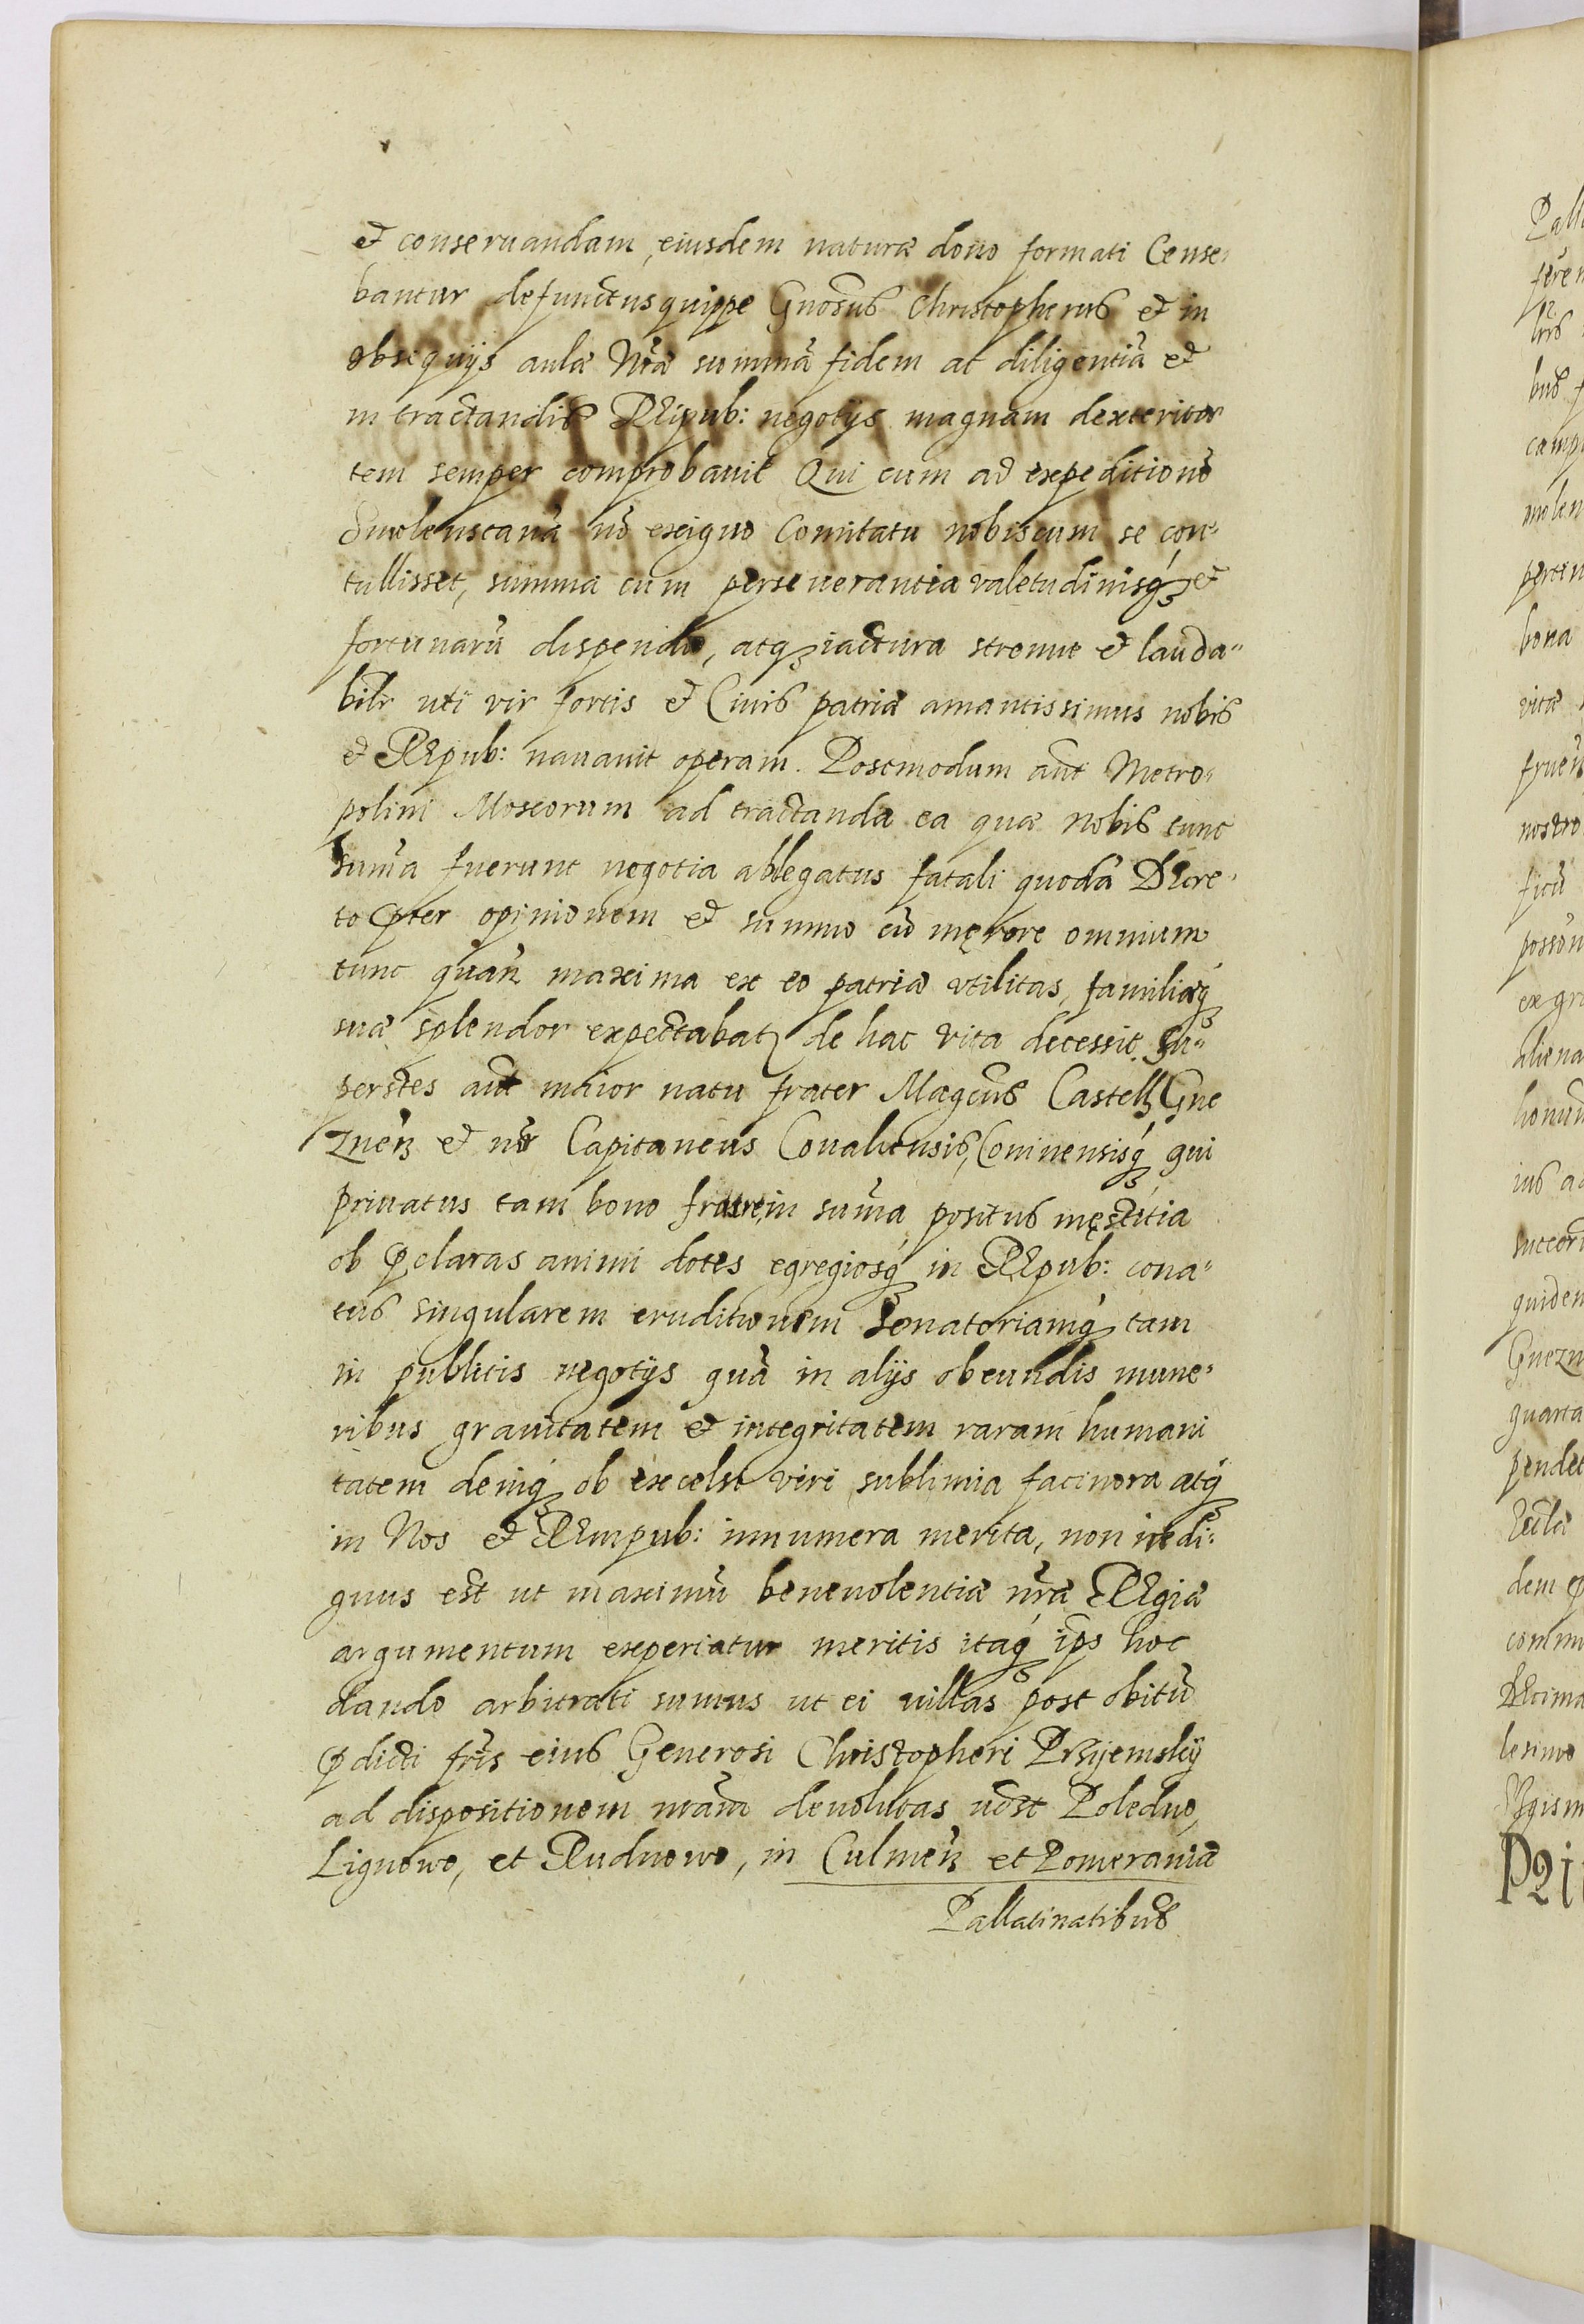 et conseruandam, eiusdem naturæ dono formati Cense
bantur defunctus quippe Gnosus Christopherus et in
obsequijs aulæ Nræ summā fidem ac diligentiā et
in tractandis Reipub: negotijs magnam dexterita
tem semper comprobauit Qui cum ad expeditionē
Smolenscanā nō exiguo Comitatu nobiscum se con-
tullisset, summa cum perseuerantia valetudinisq́ et
fortunarū dispendio, atq iactura strenue et lauda-
bilr uti vir fortis et Ciuis patriæ amantissimus nobis
et Reipub: nauauit operam. Postmodum aūt Metro-
polim Moscorum ad tractanda ea quæ nobis tunc
sum̄a fuerunt negotia ablegatus fatali quodā Decre-
to pter opinionem et summo cū męrore omnium
tunc quan maxima ex eo patriæ vtilitas, familiæq́
suæ splendor expectabat de hac vita decessit. Su-
perstes aūt maior natu frater Magcus Castell Gne
znen et nr Capitaneus Coualiensis, Coninensisq́ qui
priuatus tam bono fratre, in sum̄a positus męstitia
ob pclaras animi dotes egregiosq́ in Rempub: cona-
tus singularem eruditionem Senatoriamq́ tam
in publicis negotijs quā in alijs obeundis mune-
ribus grauitatem et integritatem raram humani
tatem deniq́ ob excelsi viri sublimia facinora atq́
in Nos et Rempub: innumera merita, non indi-
gnus est ut maximū beneuolentiæ nræ Regiæ
argumentum experiatur meritis itaq́ ips hoc
dando arbitrati sumus ut ei villas post obitū
pdicti fris eius Generosi Christopheri Przijemskij
ad dispositionem nram deuolutas Poledno,
Lignowo, et Rudnowo, in Culmen et Pomeraniæ
Pallatinatibus